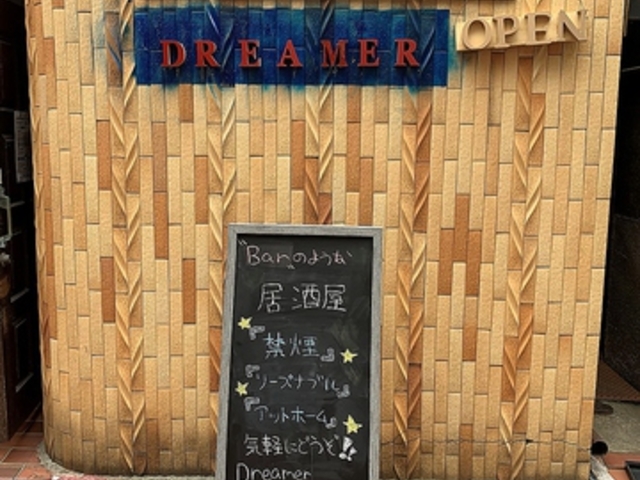 DREAMER
OPEN
"Bar"のような
居酒屋
『禁煙』
『リーズナブル』
『アットホーム』
気軽にどうぞ!!
Dreamer